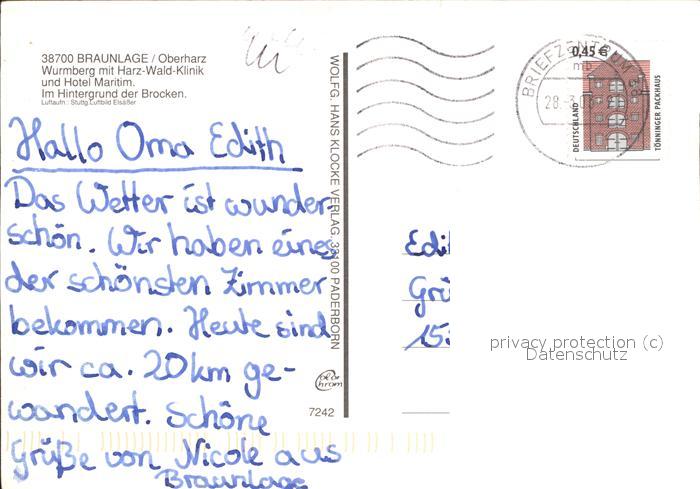 38700 BRAUNLAGE / Oberharz
Wurmberg mit Harz-Wald-Klinik
und Hotel Maritim.
Im Hintergrund der Brocken.
Luftaufn.: Stuttg. Luftbild Elsäßer
Hallo Oma Edith
Das Wetter ist wunder-
schön. Wir haben eines
der schönsten Zimmer
bekommen. Heute sind
wir ca. 20km ge-
wandert. Schöne
Grüße von Nicole aus
Braunlage
WOLFG. HANS KLOCKE VERLAG, 33100 PADERBORN
7242
BRIEFZENTRUM
mb
0,45 €
DEUTSCHLAND
TÖNNINGER PACKHAUS
Edi
Grü
15
privacy protection (c)
Datenschutz